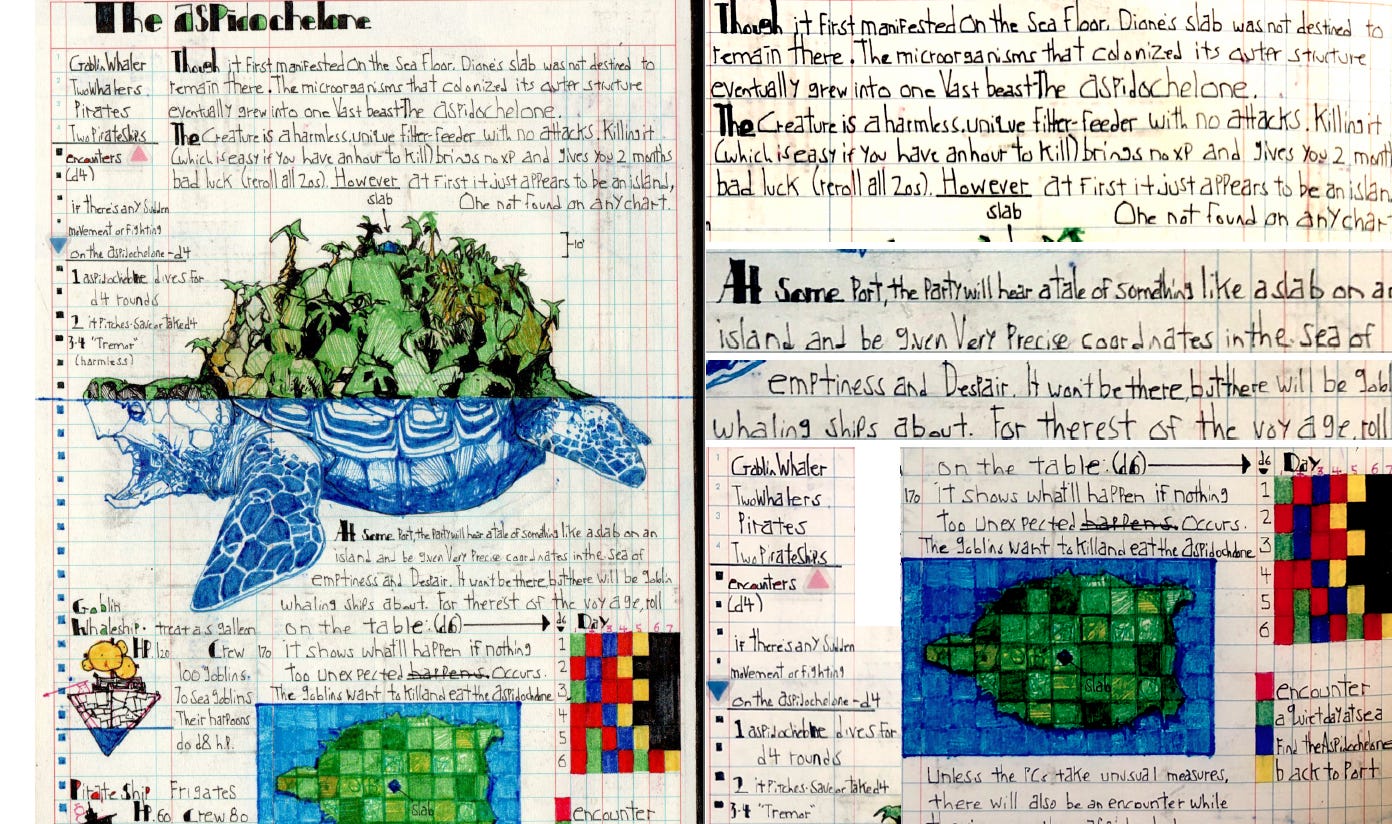 The aspidochelone
1 Goblin Whaler
2 Two Whalers
3 Pirates
4 Two Pirate Ships
encounters
(d4)
if there's any Sudden
movement or fighting
on the aspidochelone - d4
1 aspidochelone dives for
d4 rounds
2 it Pitches. Save or Take d4
3-4 "Tremor"
(harmless)
Though it First manifested On the Sea Floor, Diane's slab was not destined to
remain there. The microorganisms that colonized its outer structure
eventually grew into one Vast beast-The aspidochelone.
The Creature is a harmless, unique filter-feeder with no attacks. Killing it
(which is easy if You have an hour to Kill) brings no XP and gives You 2 months
bad luck (reroll all 20s). However at First it just appears to be an island,
One not found on any chart.
slab
10'
At Some Port, the Party will hear a tale of something like a slab on an
island and be given Very Precise coordinates in the Sea of
emptiness and Despair. It won't be there, but there will be goblin
whaling ships about. For the rest of the voyage, roll
on the table: (d6)
it shows what'll happen if nothing
too unexpected happens. Occurs.
The goblins want to kill and eat the aspidochelone
Goblin
Whaleship - treat as galleon
HP 120 Crew 170
100 goblins.
70 Sea goblins
Their harpoons
do d8 h.p.
Pirate Ship Frigates
HP. 60 Crew 80
d6 Day
1 2 3 4 5 6 7
1
2
3
4
5
6
slab
encounter
Though it First manifested On the Sea Floor, Diane's slab was not destined to
remain there. The microorganisms that colonized its outer structure
eventually grew into one Vast beast-The aspidochelone.
The Creature is a harmless, unique filter-feeder with no attacks. Killing it
(which is easy if You have an hour to Kill) brings no XP and gives You 2 month
bad luck (reroll all 20s). However at First it just appears to be an islan
slab
One not found on any char
At Some Port, the Party will hear a tale of something like a slab on an
island and be given Very Precise coordinates in the Sea of
emptiness and Despair. It won't be there, but there will be gobl
whaling ships about. For the rest of the voyage, roll
1 Goblin Whaler
2 Two Whalers
3 Pirates
4 Two Pirate Ships
encounters
(d4)
if there's any Sudden
movement or fighting
on the aspidochelone - d4
1 aspidochelone dives for
d4 rounds
2 it Pitches. Save or Take d4
3-4 "Tremor"
on the table: (d6)
170 it shows what'll happen if nothing
too unexpected happens. Occurs.
The goblins want to kill and eat the aspidochelone
d6 Day
1 2 3 4 5 6 7
1
2
3
4
5
6
slab
encounter
a quiet day at sea
Find the Aspidochelone
back to Port
Unless the PCs take unusual measures,
there will also be an encounter while